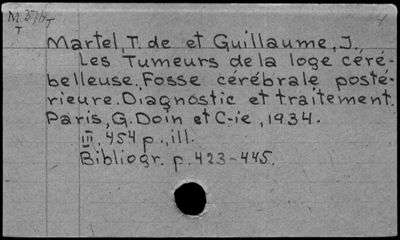 Martel, T. de et Guillaume, J.,
Les Tumeurs de la loge céré-
belleuse. Fosse cérébrale posté-
rieure. Diagnostic et traitement.
Paris, G. Doin et C-ie, 1934.
III, 454 p., ill.
Bibliogr. p. 423-445.